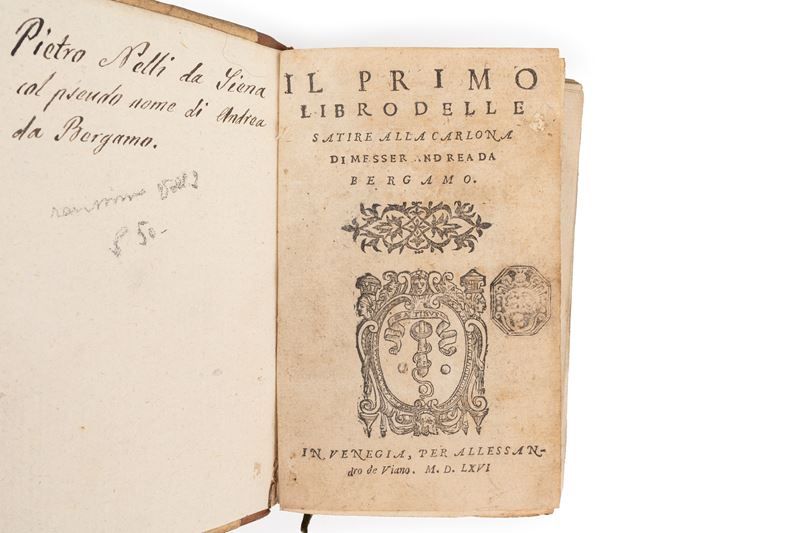 Pietro Nelli da Siena
col pseudo nome di Andrea
da Bergamo.
50.-
IL PRIMO
LIBRO DELLE
SATIRE ALLA CARLONA
DI MESSER ANDREA DA
BERGAMO.
IN VENEGIA, PER ALLESSAN-
dro de Viano. M. D. LXVI